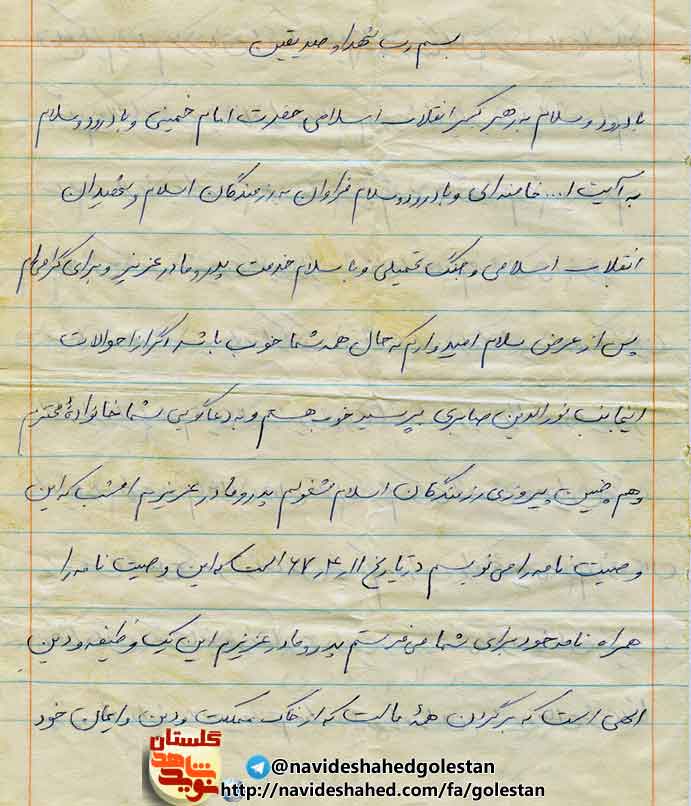 بسم رب شهدا و صدیقین
با درود و سلام به رهبر کبیر انقلاب اسلامی حضرت امام خمینی و با درود و سلام
به آیت ا... خامنه ای و با درود و سلام فراوان به رزمندگان اسلام و شهیدان
انقلاب اسلامی و جنگ تحمیلی و با سلام خدمت پدر و مادر عزیز و برای گرامی ام
پس از عرض سلام امیدوارم که حال همه شما خوب باشد اگر از احوالات
اینجانب نورالدین صابری بپرسید خوب هستم و به دعاگویی شما خانوادهٔ محترم
و هم چنین پیروزی رزمندگان اسلام مشغولم پدر و مادر عزیزم امشب که این
وصیت نامه را می نویسم در تاریخ ۱۱ر۴ر۶۷ است که این وصیت نامه را
همراه نامه خود برای شما می فرستم پدر و مادر عزیزم این یک وظیفه و دین
الهی است که بر گردن همهٔ ماست که از خاک مملکت و دین و ایمان خود
گلستان
نوید شاهد
@navideshahedgolestan
http://navideshahed.com/fa/golestan